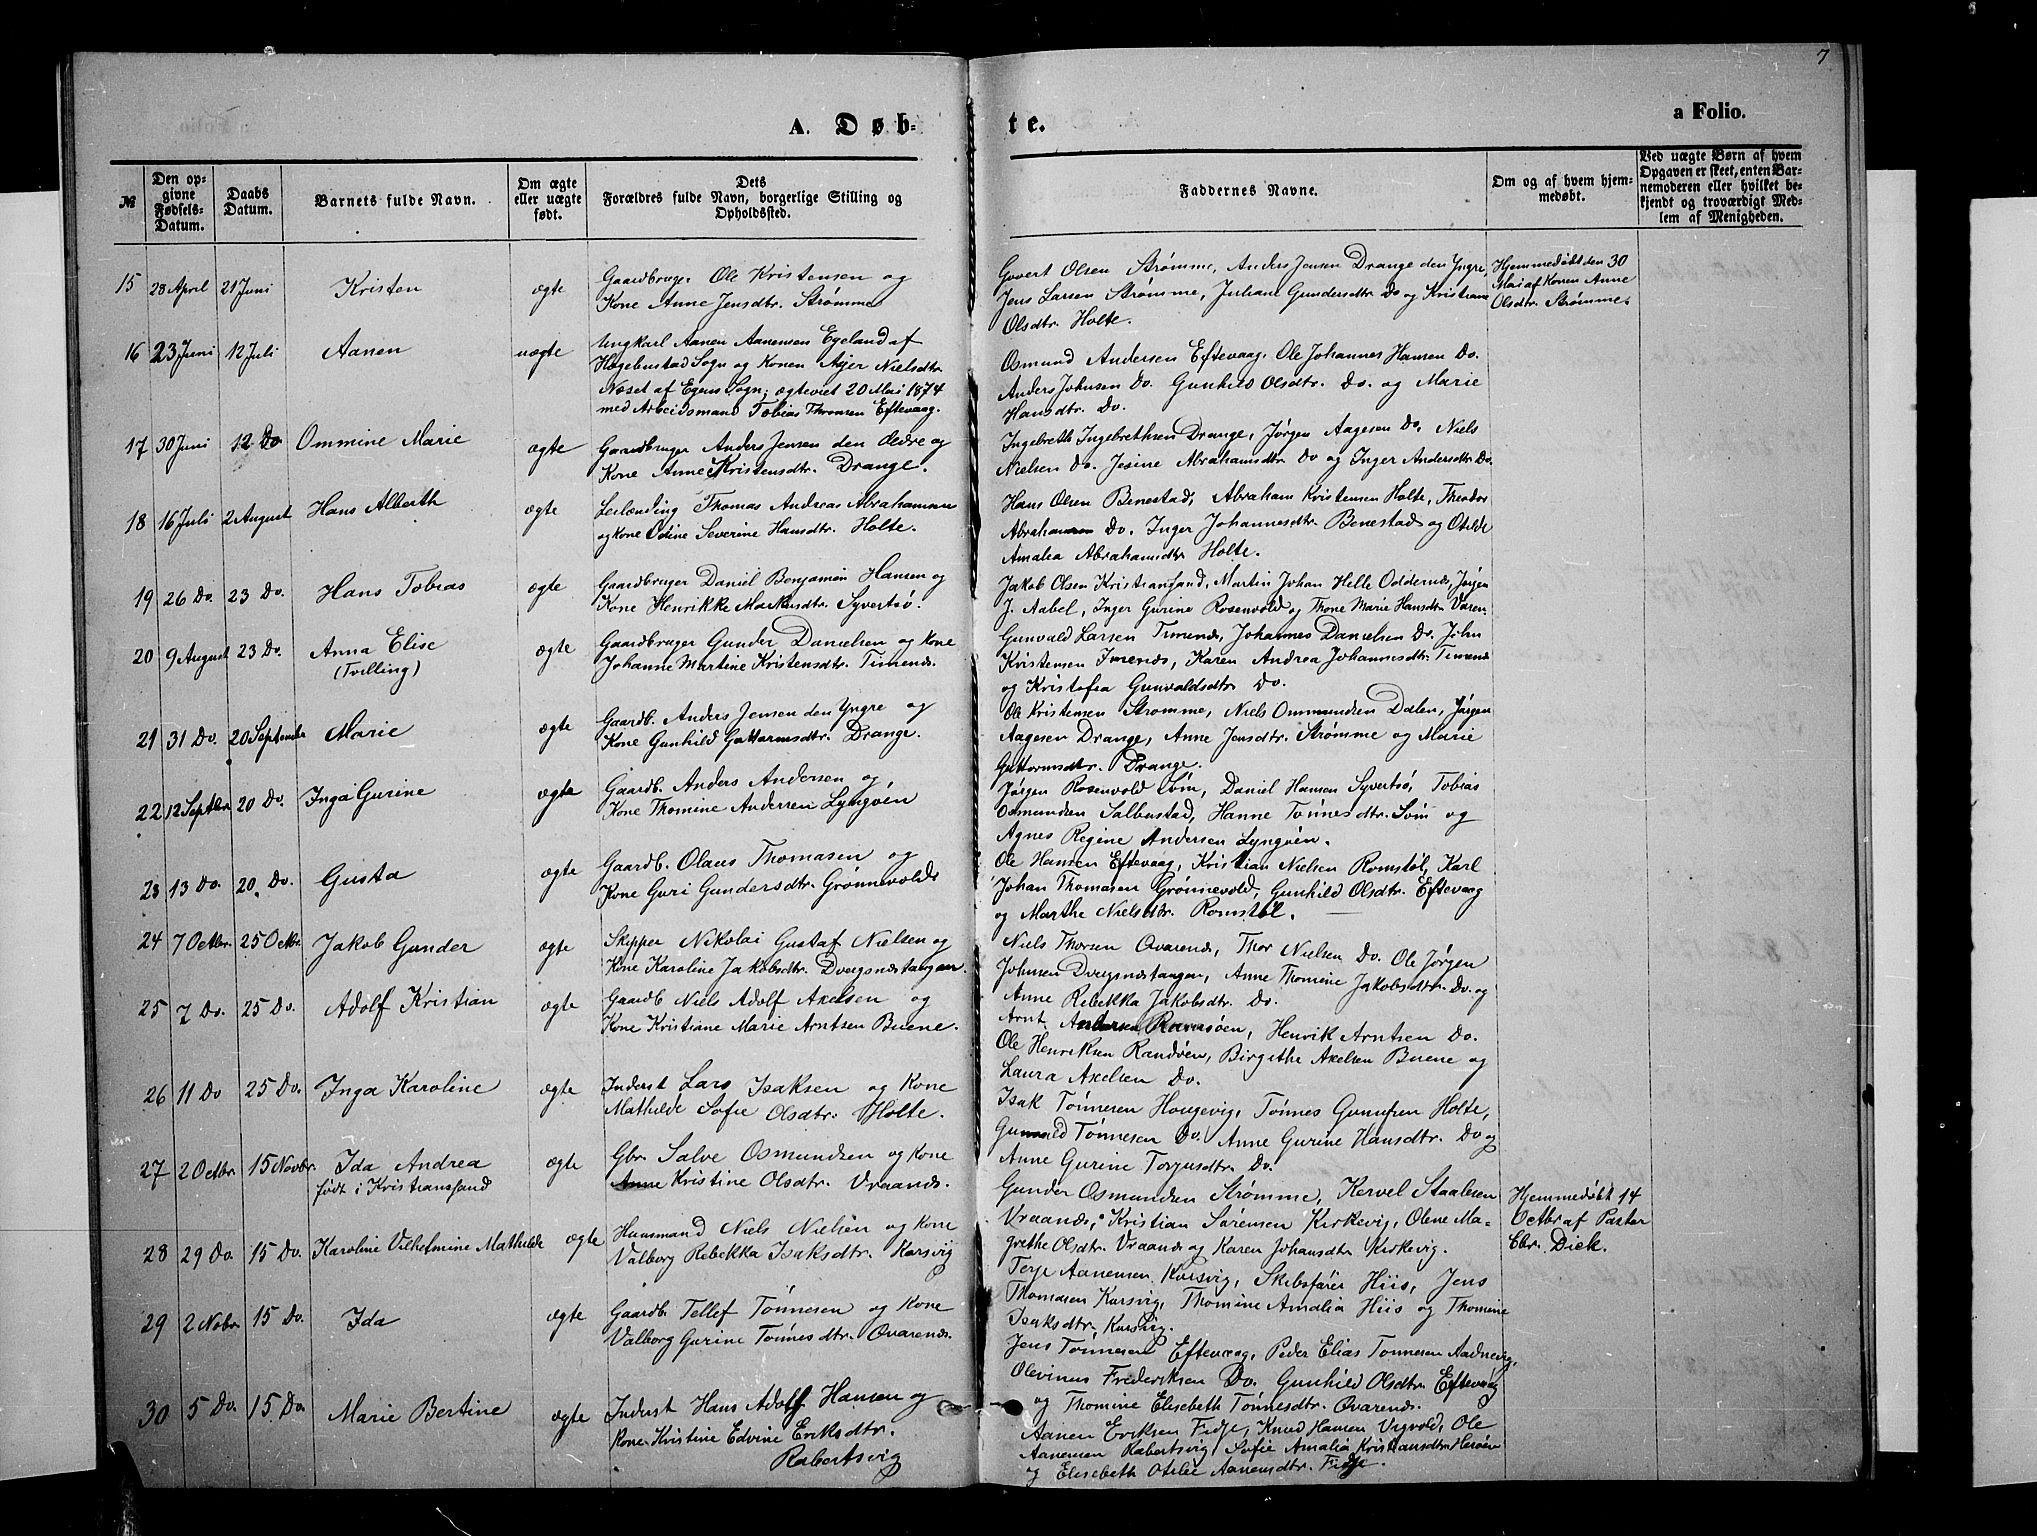 7
A. Døb-
te.
a Folio.
№
Den op-
givne
Fødsels-
Datum.
Daabs
Datum.
Barnets fulde Navn.
Om ægte
eller uægte
født.
Dets
Forældres fulde Navn, borgerlige Stilling og
Opholdssted.
Faddernes Navne.
Om og af hvem hjem-
medøbt.
Ved uægte Børn af hvem
Opgaven er skeet, enten Bar-
nemoderen eller hvilket be-
kjendt og troværdigt Med-
lem af Menigheden.
15 28 April 21 Juni Kristen ægte
Gaardbruger Ole Kristensen og
Kone Anne Jensdtr. Strømme
Govert Olsen Strømme, Anders Jensen Drange den Yngre,
Jens Larsen Strømme, Juliane Gundersdtr Do og Kristiane
Olsdtr. Holte.
Hjemmedøbt den 30
Mai af Konen Anne
Olsdtr. Strømme.
16 23 Juni 12 Juli Aanen uægte
Ungkarl Aanen Aanensen Egeland af
Hægebustad Sogn og Konen Asjer Nielsdtr
Næset af Egens Sogn; ægteviet 20 Mai 1874
med Arbeidsmand Tobias Thomsen Eftevaag.
Osmund Andersen Eftevaag, Ole Johannes Hansen Do.
Anders Johnsen Do. Gunhild Olsdtr. Do. og Marie
Hansdtr. Do.
17 30 Juni 12 Do Ommine Marie ægte
Gaardbruger Anders Jensen den ældre og
Kone Anne Kristensdtr. Drange.
Ingebreth Ingebrethsen Drange, Jørgen Aagesen Do. Niels
Nielsen Do. Jesine Abrahamsdtr Do og Inger Andersdtr Do.
18 16 Juli 2 August Hans Alberth ægte
Leilænding Thomas Andreas Abrahamsen
og Kone Odine Severine Hansdtr. Holte.
Hans Olsen Benestad, Abraham Kristensen Holte, Theodor
Abrahamsen Do. Inger Johannesdtr. Benestad og Otilde
Amalia Abrahamsdtr Holte.
19 26 Do. 23 Do. Hans Tobias ægte
Gaardbruger Daniel Benjamin Hansen og
Kone Henrikke Markusdtr. Syvertsø.
Jakob Olsen Kristiansand, Martin Johan Helle Oddernæs, Jørgen
J. Aabel, Inger Gurine Rosenvold og Thone Marie Hansdtr. Varen
20 9 August 23 Do. Anna Elise
(Tvilling)
ægte
Gaardbruger Gunder Danielsen og Kone
Johanne Martine Kristensdtr. Timenæs.
Gunvald Larsen Timenæs, Johannes Danielsen Do. John
Kristensen Timenæs, Karen Andrea Johannesdtr. Timenæs
og Kristofia Gunvaldsdtr. Do.
21 31 Do. 20 September Marie ægte
Gaardb. Anders Jensen den Yngre og
Kone Gunhild Guttormsdtr. Drange.
Ole Kristensen Strømme, Niels Ommundsen Dalen, Jørgen
Aagesen Drange, Anne Jensdtr. Strømme og Marie
Guttormsdtr. Drange.
22 12 Septbr 20 Do. Inga Gurine ægte
Gaardb. Anders Andersen og
Kone Thomine Andersen Lyngøen
Jørgen Rosenvold Søm, Daniel Hansen Syvertsø, Tobias
Osmundsen Salbustad, Hanne Tønnesdtr. Søm og
Agnes Regine Andersen Lyngøen.
23 13 Do. 20. Do. Gusta ægte
Gaardb. Olaus Thomasen og
Kone Guri Gundersdtr. Grønnevolds
Ole Hansen Eftevaag, Kristian Nielsen Romstøl, Karl
Johan Thomasen Grønnevold, Gunhild Olsdtr. Eftevaag
og Marthe Nielsdtr. Romstøl.
24 7 Octbr. 25 Octbr Jakob Gunder ægte
Skipper Nikolai Gustaf Nielsen og
Kone Karoline Jakobsdtr. Dvergsnestangen.
Niels Thorsen Qvarenæs, Thor Nielsen Do. Ole Jørgen
Johnsen Dvergsnestangen, Anne Thomine Jakobsdtr. Do. og
Anne Rebekka Jakobsdtr. Do.
25 7 Do. 25 Do. Adolf Kristian ægte
Gaardb Niels Adolf Axelsen og
Kone Kristiane Marie Arntsen Buene.
Arnt Andersen Randøen, Henrik Arntsen Do.
Ole Henriksen Randøen, Birgithe Axelsen Buene og
Laura Axelsen Do.
26 11 Do 25 Do. Inga Karoline ægte
Inderst Lars Isaksen og Kone
Mathilde Sofie Olsdtr. Holte.
Isak Tønnesen Hougevig, Tønnes Gunufsen Holte,
Gunuld Tønnesen Do. Anne Gurine Hansdtr. Do og
Anne Gurine Torjusdtr. Do.
27 2 Octbr. 15 Novbr. Ida Andrea
født i Kristiansand
ægte
Gbr. Salve Osmundsen og Kone
Anne Kristine Olsdtr. Vraanæs.
Gunder Osmundsen Strømme, Kervel Staalesen
Vraanæs, Kristian Sørensen Kirkevig, Olene Ma-
grethe Olsdtr. Vraanæs og Karen Johansdtr. Kirkevig.
Hjemmedøbt 14
Octbr af Pastor
Chr. Dick.
28 29 Do 15 Do. Karoline Vilhelmine Mathilde ægte
Huusmand Niels Nielsen og Kone
Valborg Rebekka Isaksdtr. Korsvig
Terje Aanensen Korsvig, Skibsfører Hiis, Jens
Thomasen Korsvig, Thomine Amalia Hiis og Thomine
Isaksdtr. Korsvig.
29 2 Novbr 15 Do. Ida ægte
Gaardb. Tellef Tønnesen og Kone
Valborg Gurine Tønnesdtr. Qvarenæs.
Jens Tønnesen Eftevaag, Peder Elias Tønnesen Aadnevig,
Olevinus Frederiksen Do. Gunhild Olsdtr. Eftevaag
og Thomine Elisebeth Tønnesdtr. Qvarenæs.
30 5 Do. 15. Do. Marie Bertine ægte
Inderst Hans Adolf Hansen og
Kone Kristine Edvine Eriksdtr.
Rabertsvig
Aanen Eriksen Fidje, Knud Hansen Vigvold, Ole
Aanensen Rabertsvig, Sofie Amalia Kristiansdtr. Herøen
og Elisebeth Otilie Aanensdtr. Fidje.